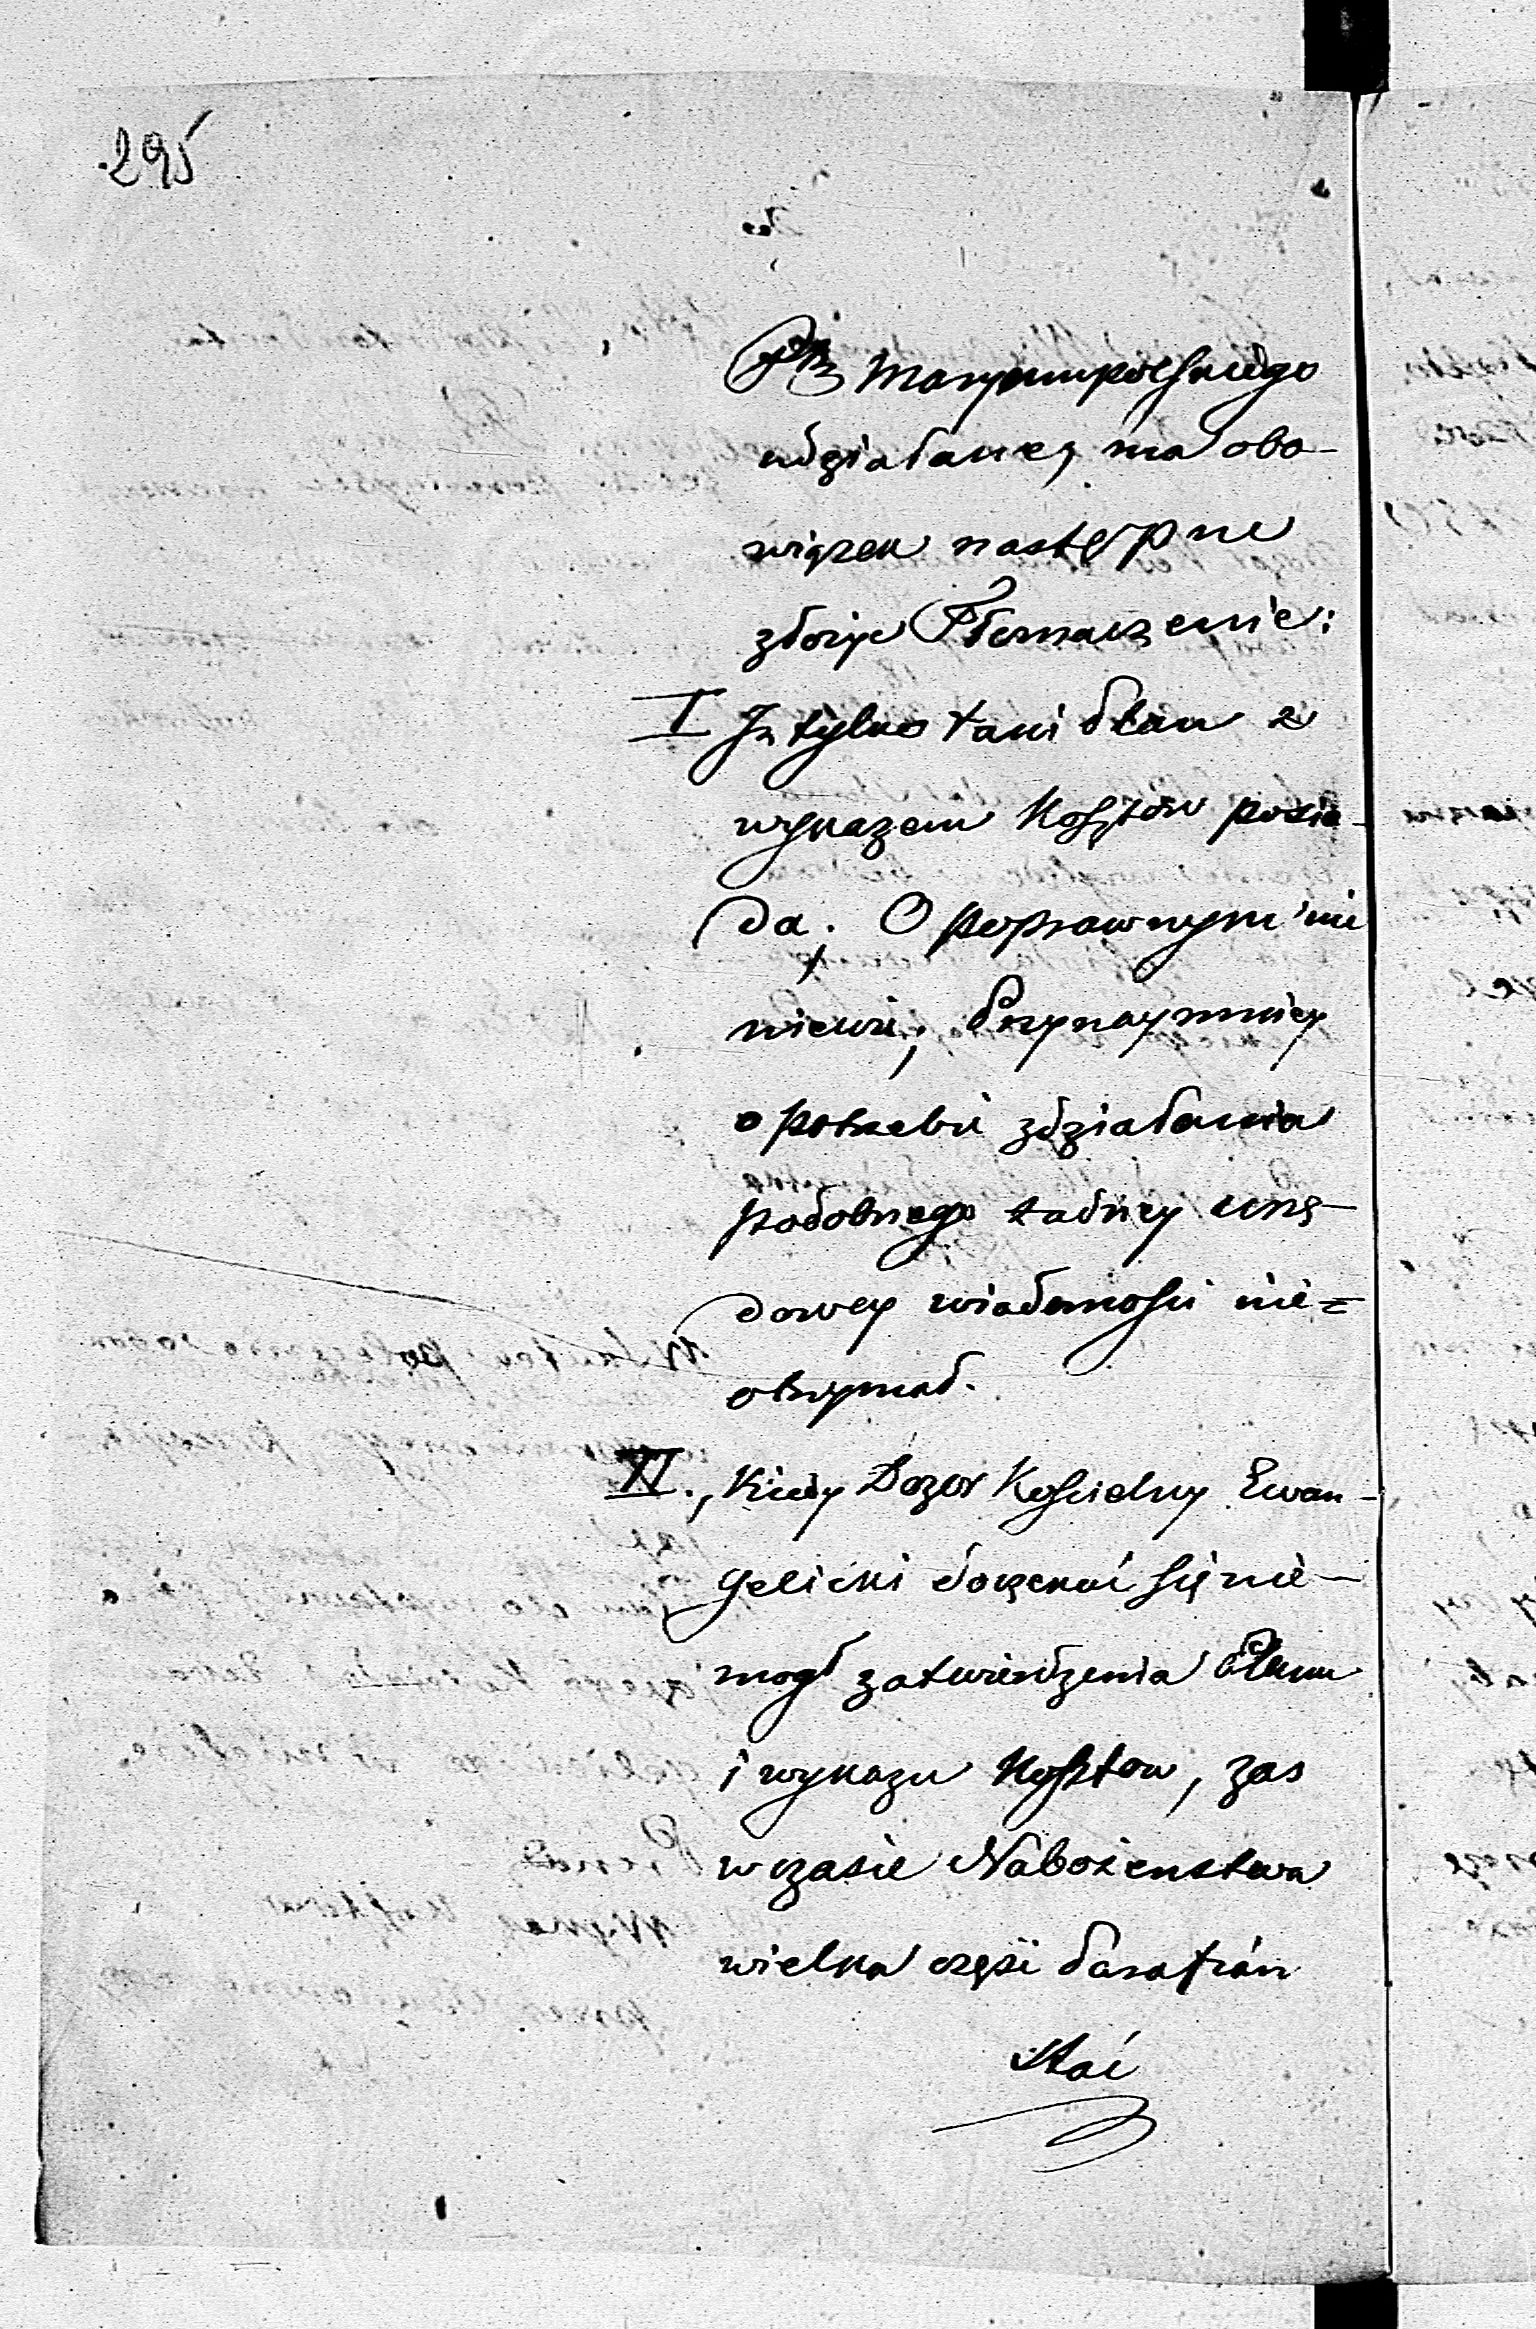 295
Maryampolskiego
udziałaney, ma obo-
wiązek następne
złożyć Tłomaczenie:
I Iż tylko taki Plan z
wykazem Kosztów posia-
da. O poprawnym nie
wiewie; Przynaymniey
o potrzebie zdziałania
podobnego żadney urzę-
dowey wiadomości nie=
otrzymał.
II., Kiedy Dozor Kościelny Ewan-
gelicki doczekać się nie-
mogł zatwierdzenia Planu
i wykazu Kosztow, zas
w czasie Nabożenstwa
wielka część Parafian
stać